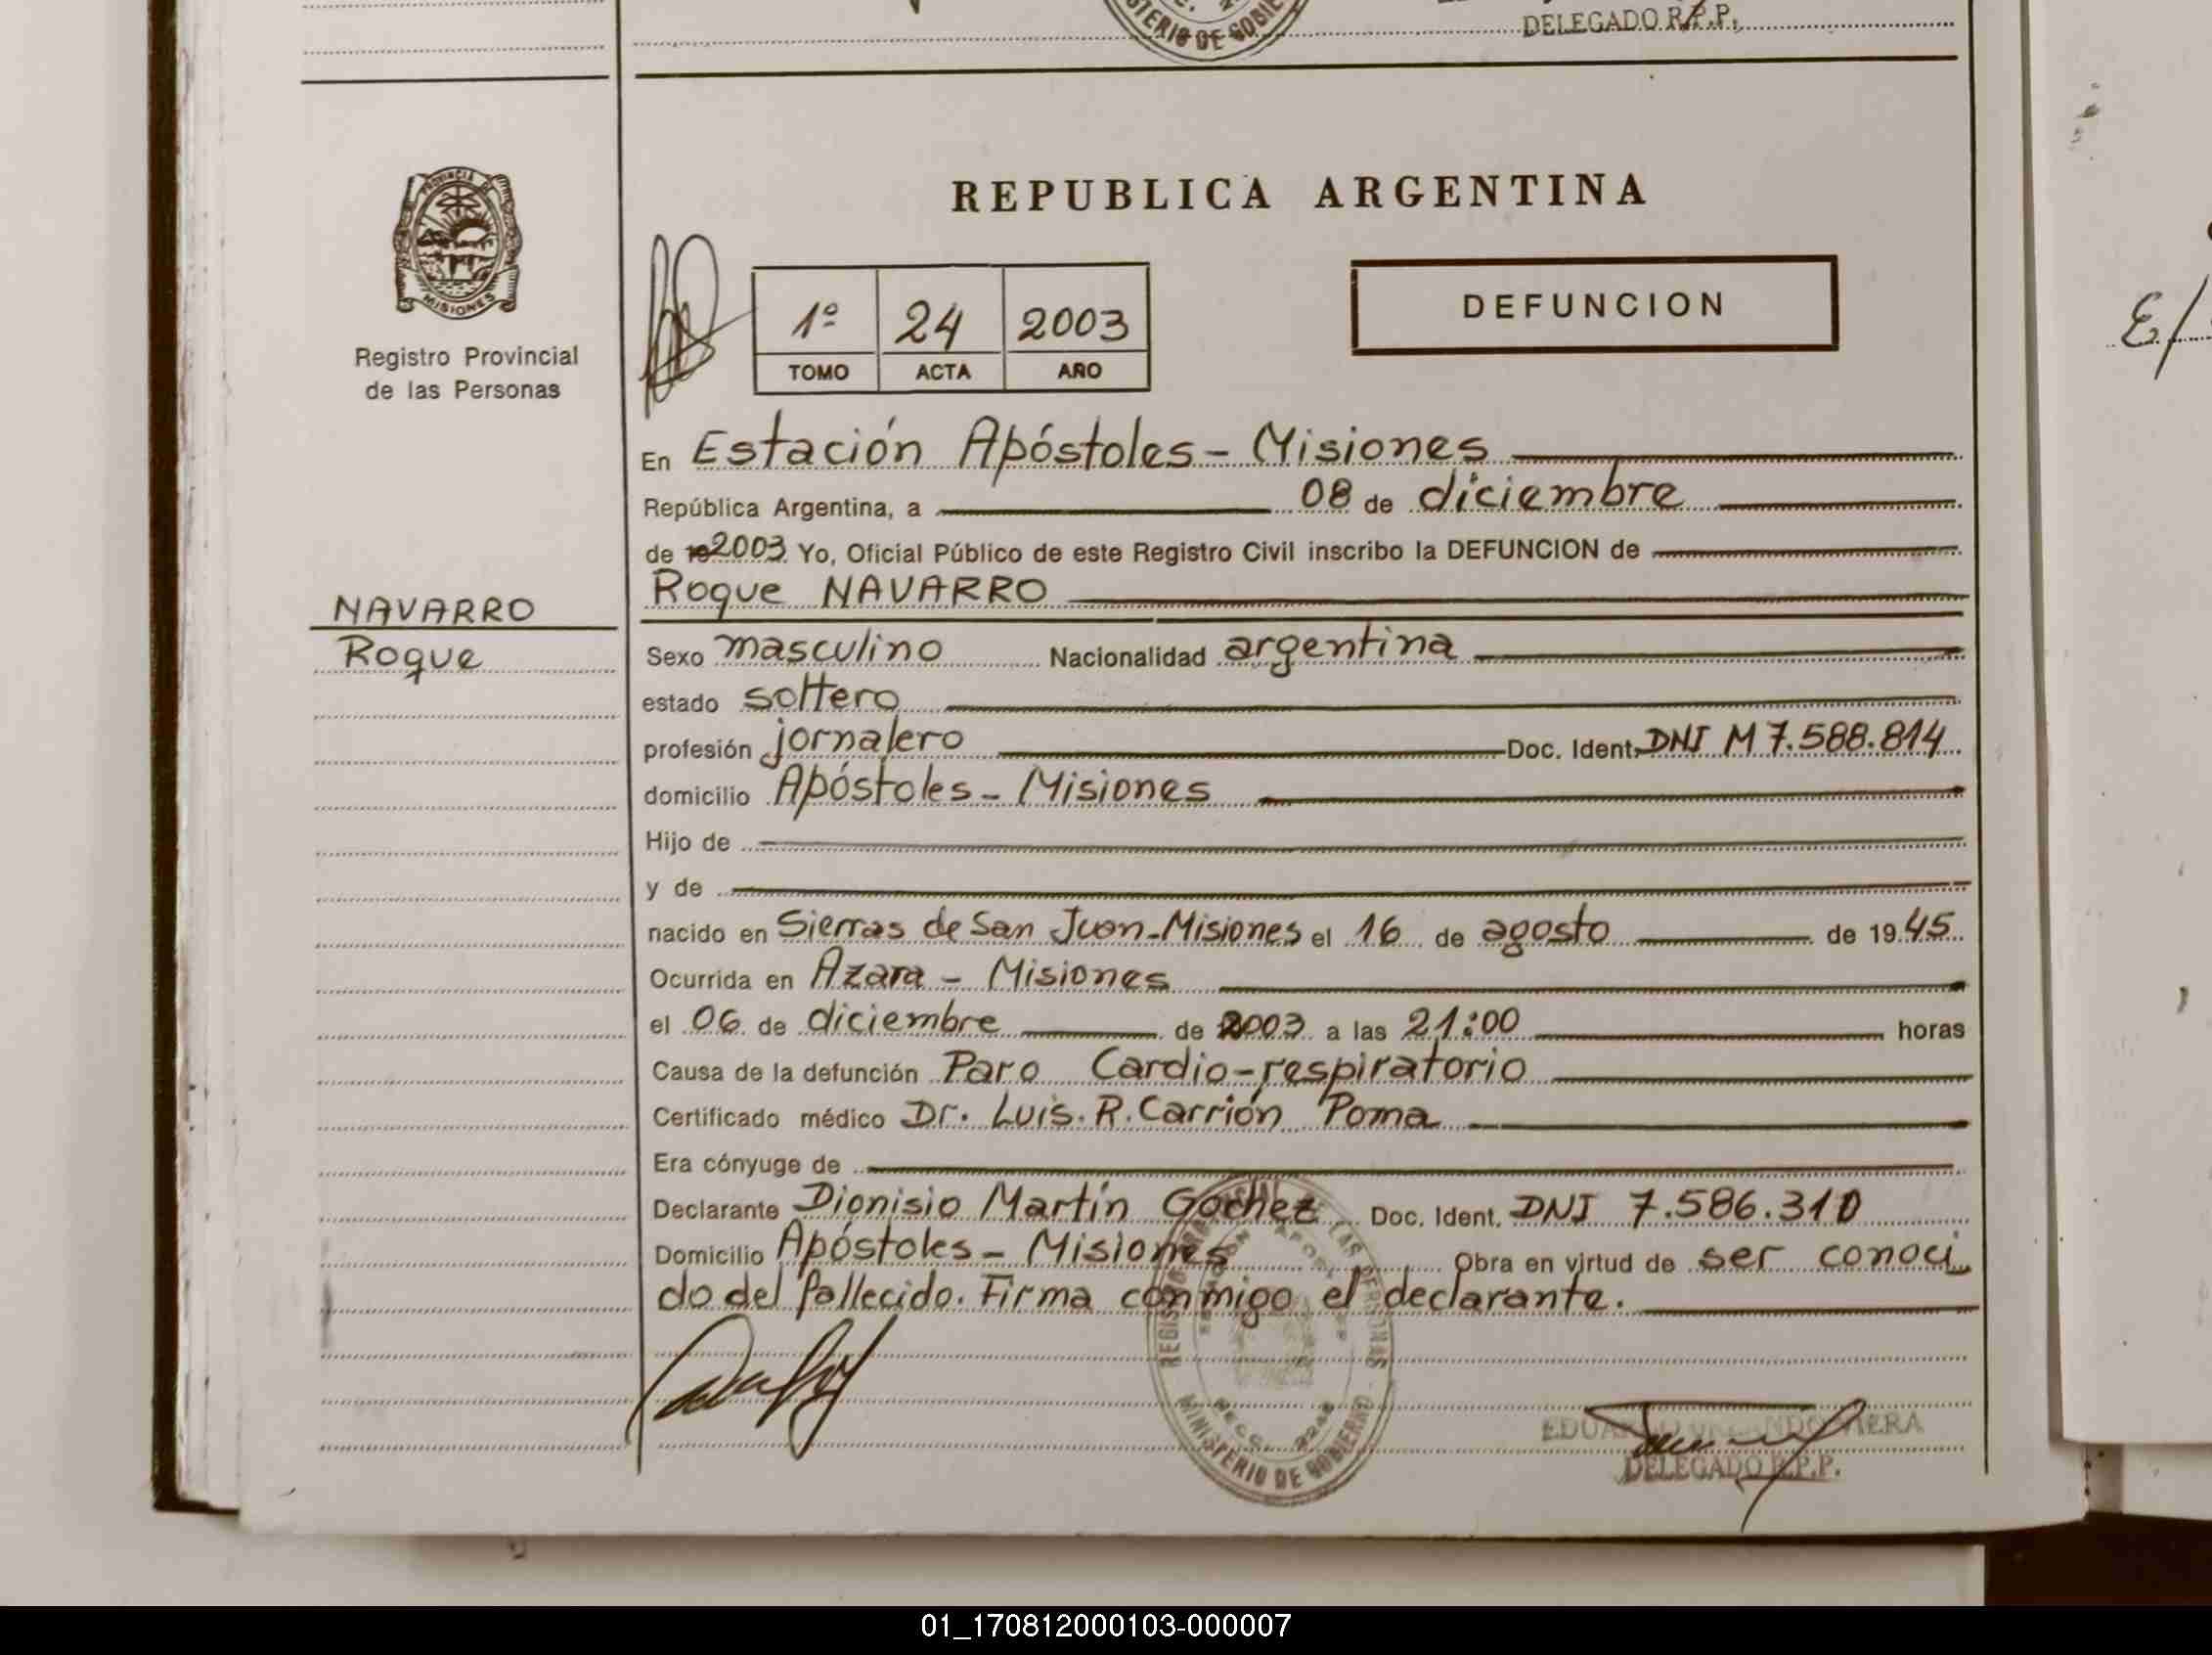 MINISTERIO DE GOBIE
DELEGADO R.P.P.
PROVINCIA DE
MISIONES
Registro Provincial
de las Personas
REPUBLICA ARGENTINA
1º 24 2003
TOMO ACTA AÑO
DEFUNCION
E/
En Estación Apóstoles - Misiones
República Argentina, a 08 de diciembre
de 19 2003 Yo, Oficial Público de este Registro Civil inscribo la DEFUNCION de
NAVARRO
Roque
Roque NAVARRO
Sexo masculino Nacionalidad argentina
estado soltero
profesión jornalero Doc. Ident. DNI M 7.588.814
domicilio Apóstoles - Misiones
Hijo de
y de
nacido en Sierras de San Juan - Misiones el 16 de agosto de 1945
Ocurrida en Azara - Misiones
el 06 de diciembre de 2003 a las 21:00 horas
Causa de la defunción Paro Cardio-respiratorio
Certificado médico Dr. Luis. R. Carrión Poma
Era cónyuge de
Declarante Dionisio Martín Gochez Doc. Ident. DNI 7.586.310
Domicilio Apóstoles - Misiones Obra en virtud de ser conoci
do del fallecido. Firma conmigo el declarante.
REGISTRO PROVINCIAL DE LAS PERSONAS
MINISTERIO DE GOBIERNO
DELEGADO R.P.P.
01_170812000103-000007